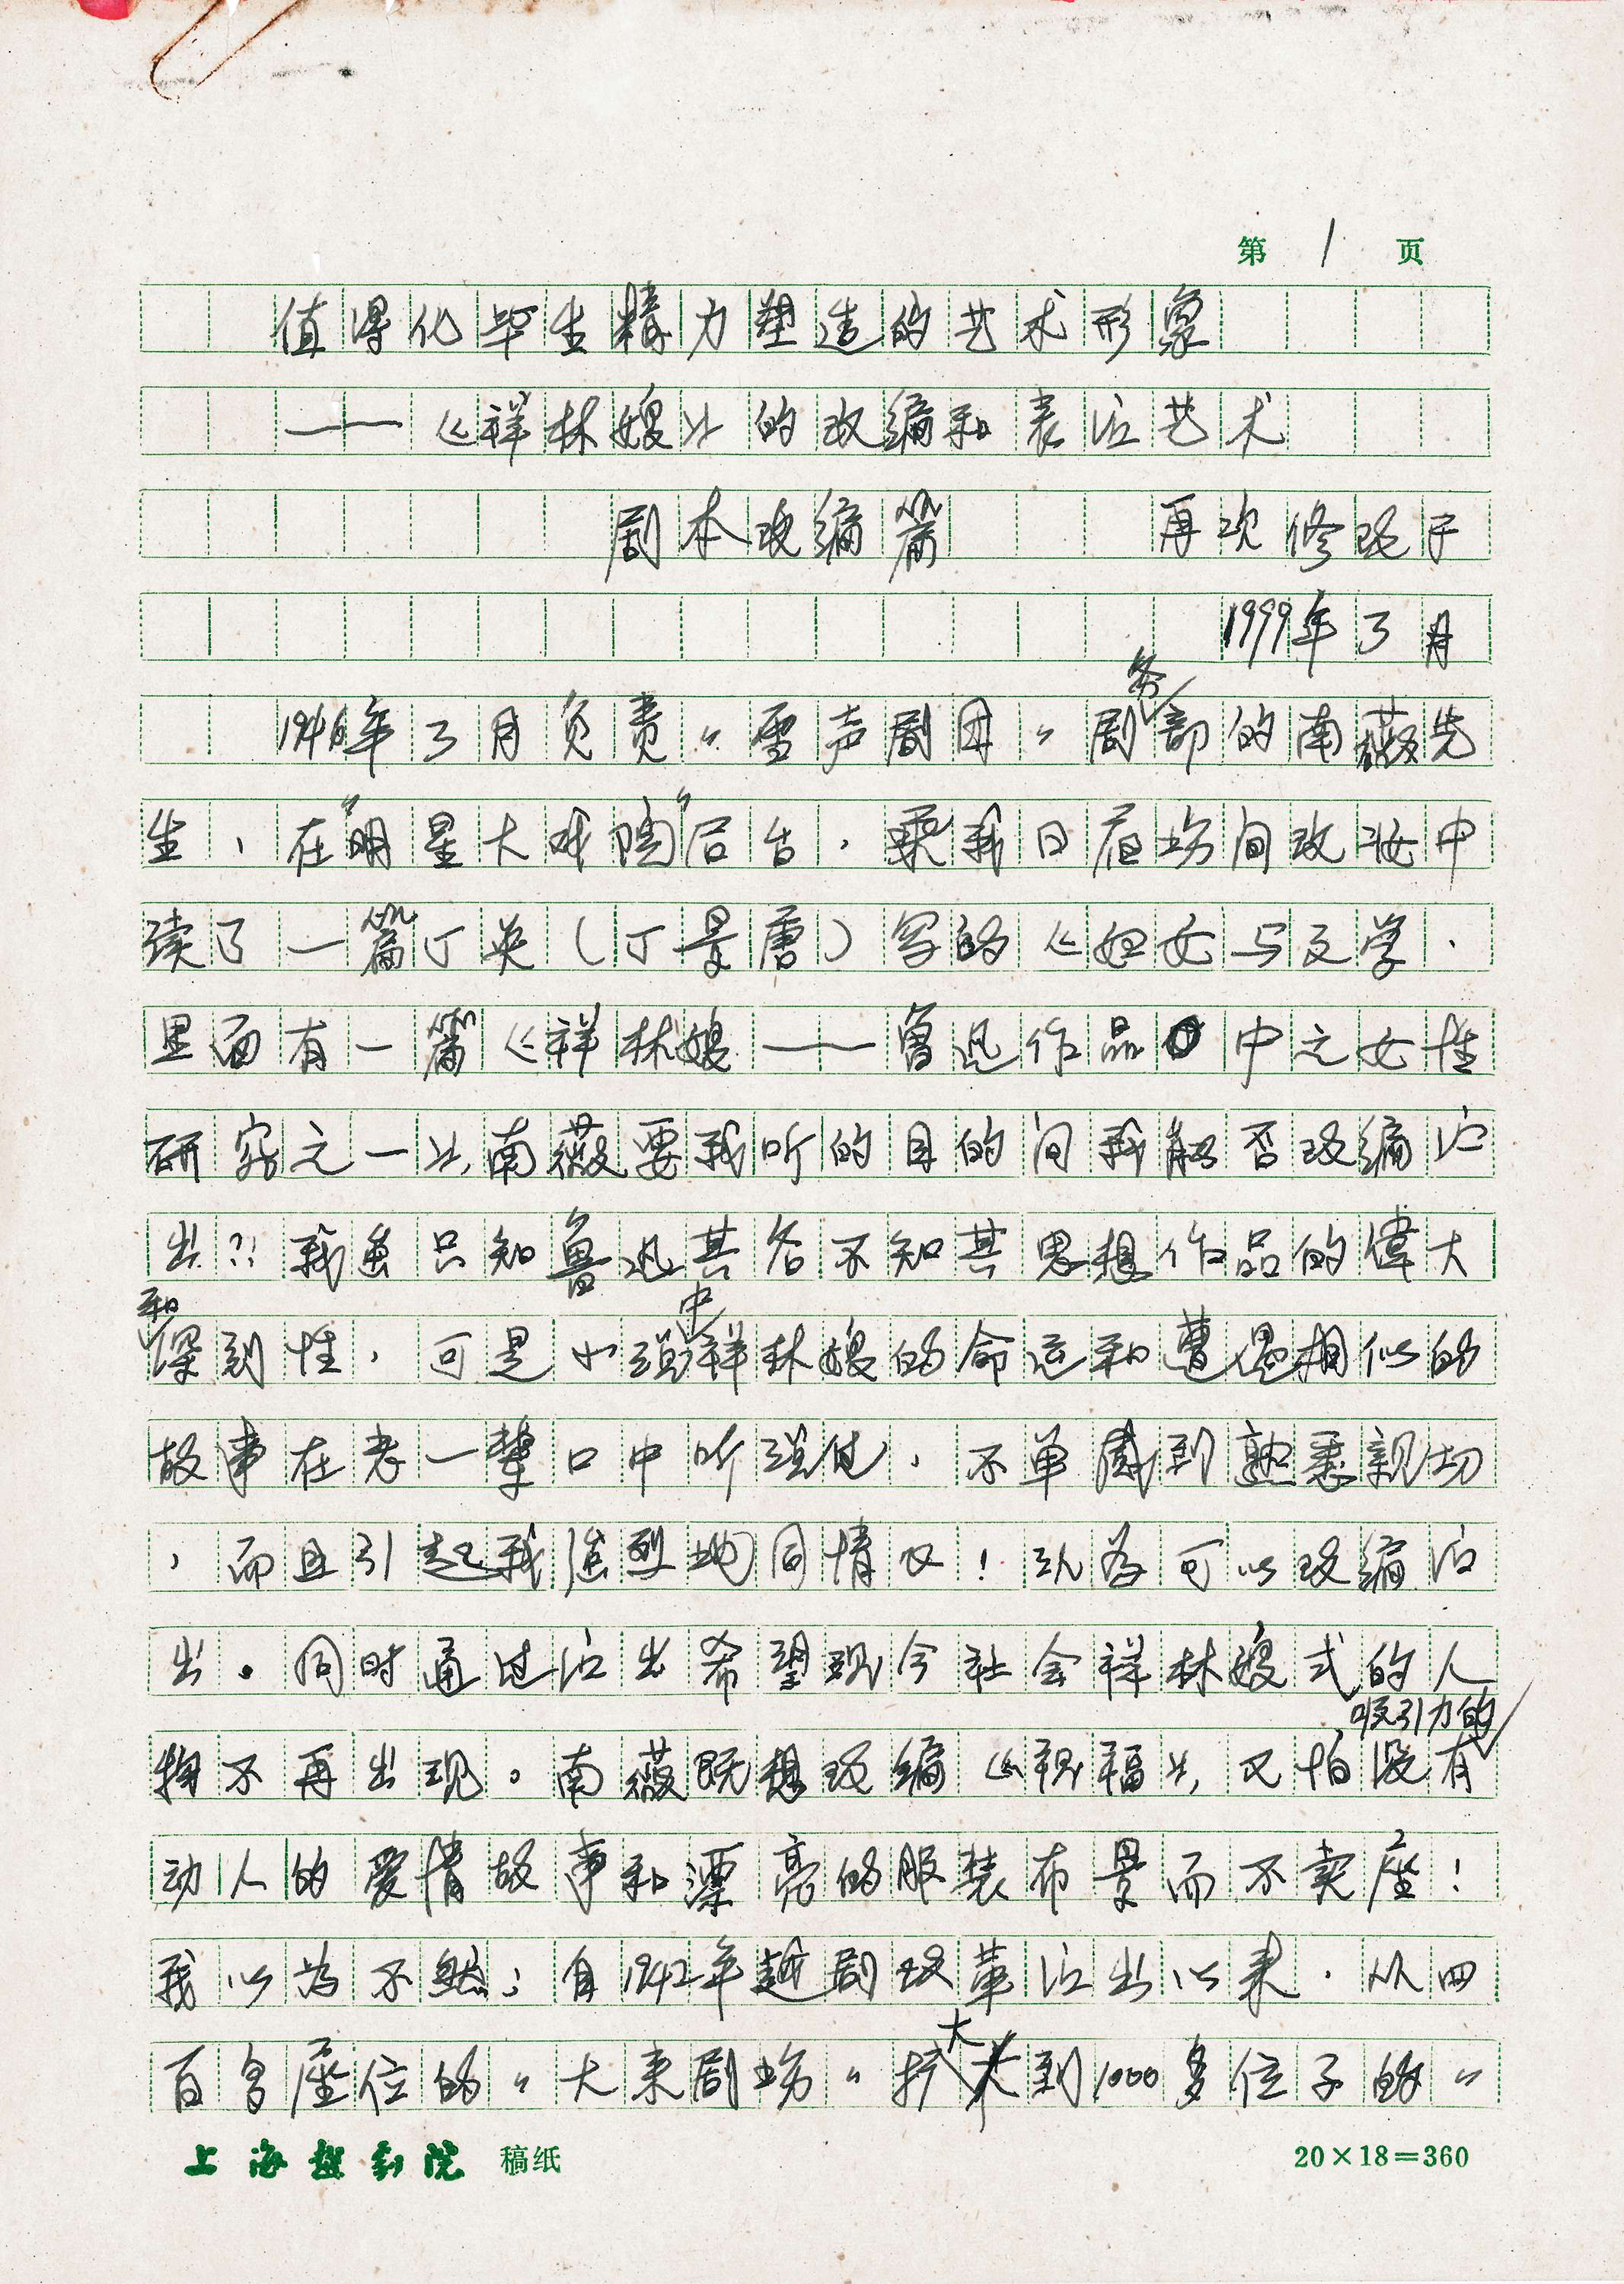 第 1 页
值得化毕生精力塑造的艺术形象
——《祥林嫂》的改编和表演艺术
剧本改编篇 再次修改于
1999年3月
1946年3月负责“雪声剧团”剧务部的南薇先
生，在“明星大戏院”后台，乘我日夜场间改妆中
读了一篇丁英（丁景唐）写的《妇女与文学，
里面有一篇《祥林嫂——鲁迅作品中之女性
研究之一》，南薇要我听的目的问我能否改编演
出？！我虽只知鲁迅其名不知其思想作品的偉大
和深刻性，可是小说中祥林嫂的命运和遭遇相似的
故事在老一辈口中听说过，不单感到熟悉親切
，而且引起我强烈地同情心！认为可以改编演
出。同时通过演出希望现今社会祥林嫂式的人
物不再出现。南薇既想改编《祝福》，又怕没有吸引力的
动人的爱情故事和漂亮的服装布景而不卖座！
我以为不然；自1942年越剧改革演出以来，从四
百多座位的“大来剧场”扩大到1000多位子的“
上海越剧院 稿纸 20×18=360